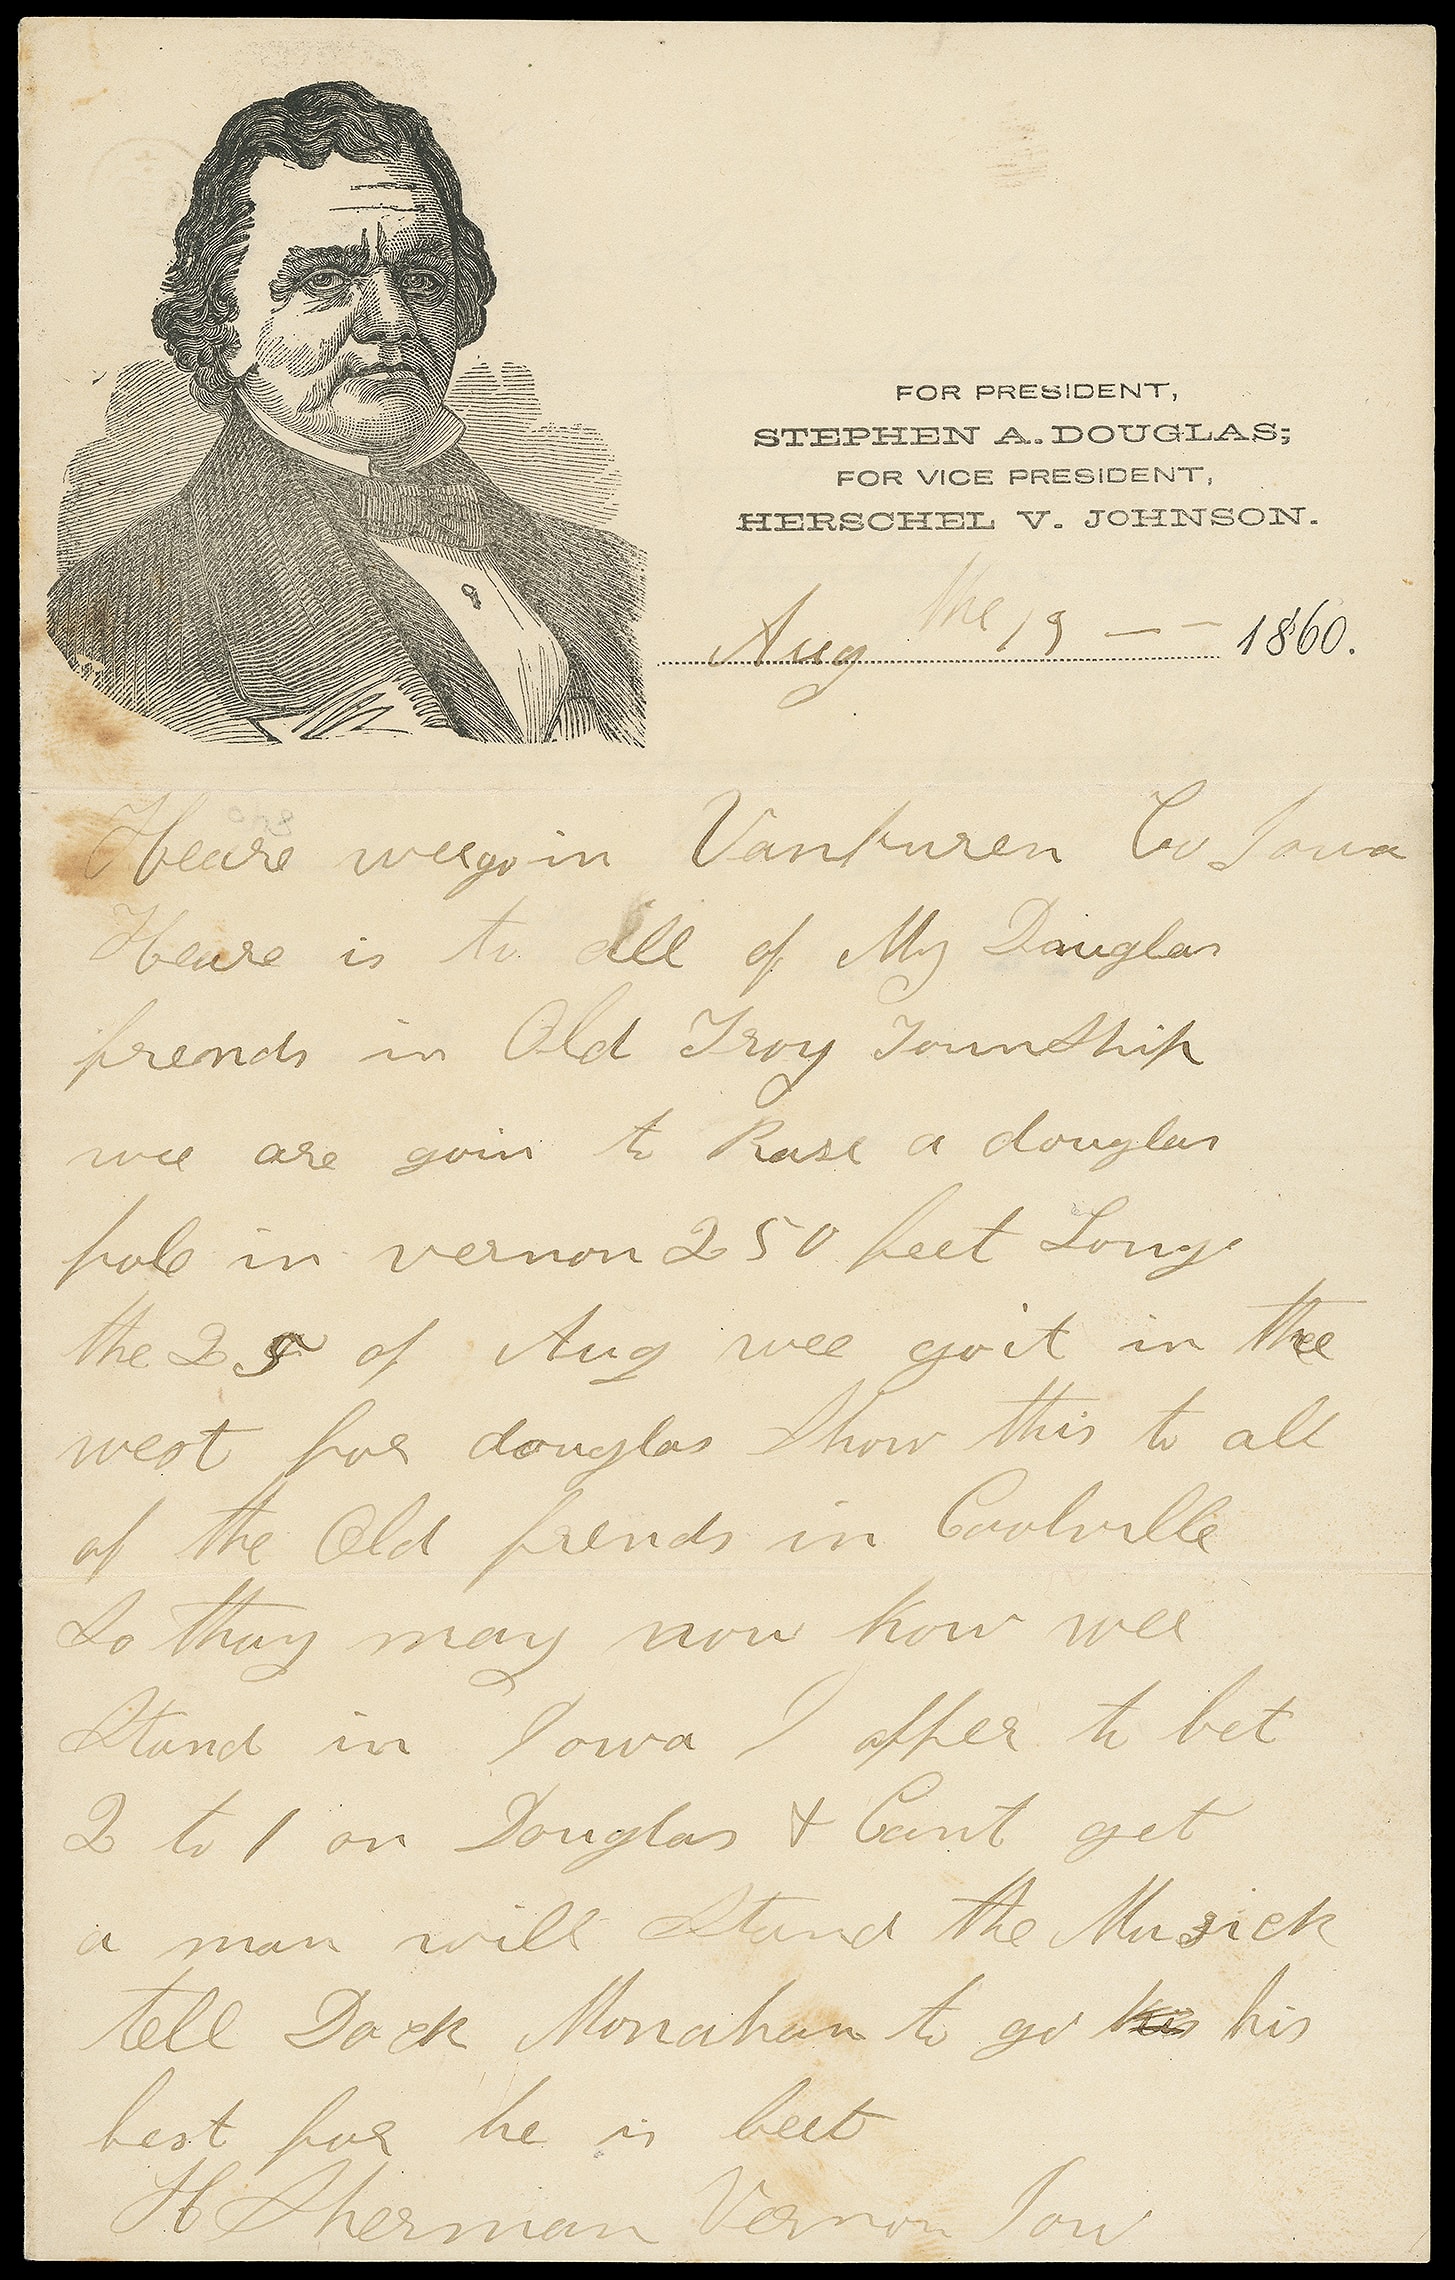 FOR PRESIDENT,
STEPHEN A. DOUGLAS;
FOR VICE PRESIDENT,
HERSCHEL V. JOHNSON.
Aug the 19 — — 1860.
Heare wee go in Vanburen Co Iowa
Heare is to all of My Douglas
frends in Old Troy TownShip
wee are goin to Rase a douglas
pole in vernon 250 feet Long
the 25 of Aug wee go it in thee
west for douglas Show this to all
of the Old frends in Coolville
So thay may now how wee
Stand in Iowa I offer to bet
2 to 1 on Douglas & Cant get
a man will Stand the Musick
tell Dock Monahan to go his his
best for he is beet
H Sherman Vernon Iow